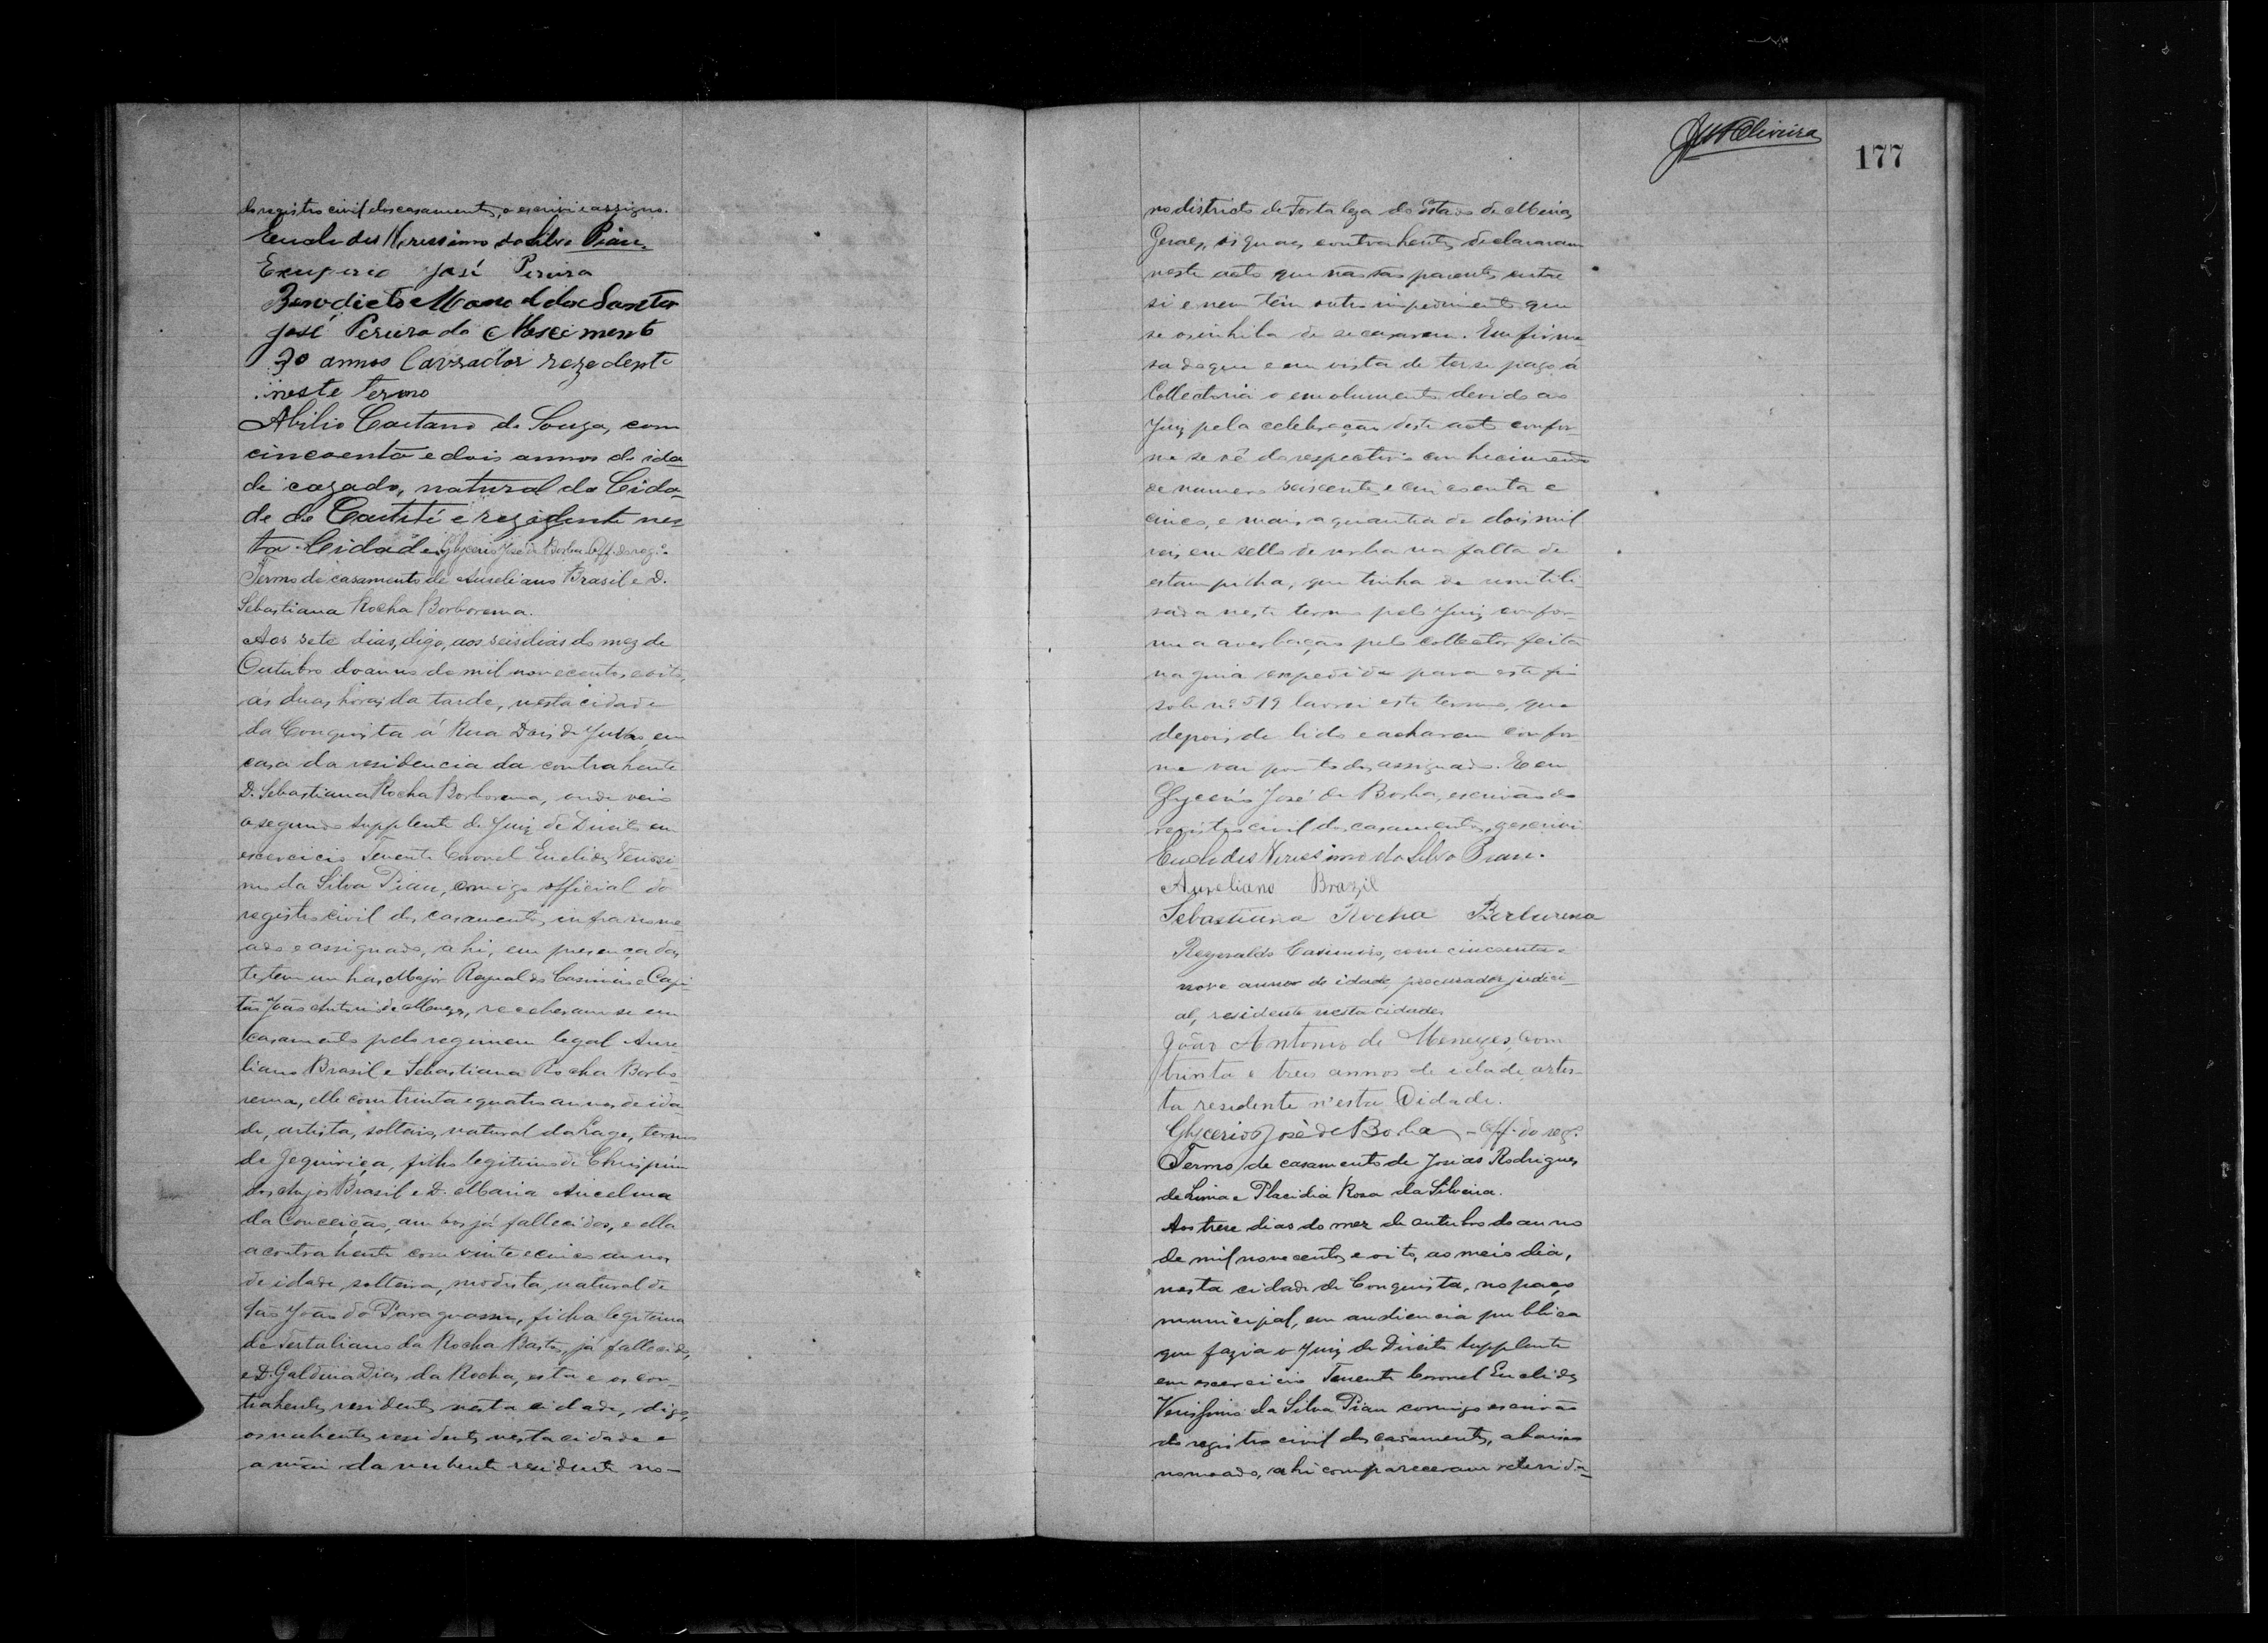 do registro civil dos casamentos, o escrivi e assigno.
Euclides Verissimo da Silva Piau.
Exuperio José Pereira
Benedicto Manoel dos Santos
José Perura do Nascimento
30 annos lavrador rezedente
neste termo
Abilio Caetano de Souza, com
cincoenta e dois annos de ida-
de cazado, natural da Cida-
de de Caetité e rezidente nes
ta Cidade. Glycerio José de Borba Off. do reg.º
Termo de casamento de Aureliano Brasil e D.
Sebastiana Rocha Borborema.
Aos sete dias, digo, aos seis dias do mez de
Outubro do anno de mil novecentos e oito,
ás duas horas da tarde, nesta cidade
da Conquista á Rua Dois de Julho, em
casa da residencia da contrahente
D. Sebastiana Rocha Borborema, onde veio
o segundo supplente do Juiz de Direito em
exercicio Tenente Coronel Euclides Verissi-
mo da Silva Piau, comigo official do
registro civil dos casamentos, infra nome
ado e assignado, ahi, em presença das
testemunhas, Major Reginaldo Casimiro e Capi
tão João Antonio de Menezes, receberam-se em
casamento pelo regimem legal Aure-
liano Brasil e Sebastiana Rocha Borbo-
rema, elle com trinta e quatro annos de ida-
de, artista, solteiro, natural da Lage, termo
de Jequiriça, filho legitimo de Chrispim
dos Anjos Brasil e D. Maria Ancelma
da Conceição, ambos já fallecidos, e ella
a contrahente com vinte e cinco annos
de idade, solteira, modista, natural de
São João do Paraguassu, filha legitima
de Tertuliano da Rocha Bastos, já fallecido,
e D. Galdina Dias da Rocha, esta e os con-
trahentes residentes nesta cidade, digo,
os nubentes residentes nesta cidade e
a mãi da nubente residente no-
JM Oliveira
177
no districto de Fortaleza do Estado de Minas
Geraes, os quaes contrahentes declararam
neste acto que não são parentes entre
si e nem têm outro impedimento que
se os inhiba de se casarem. Em firme
sa do que e em vista de ter-se pago á
Collectoria o emolumento devido ao
Juiz pela celebração deste acto confor-
me se vê do respectivo conhecimento
de numero seiscentos e cincoenta e
cinco, e mais a quantia de dois mil
reis em sello de verba na falta de
estampilha, que tinha de ser inutili
sada neste termo pelo Juiz confor-
me a averbação pelo collector feita
na guia expedida para este fim
sob nº 519 lavrei este termo, que
depois de lido e acharem confor
me vai por todos assignado. E eu
Glycerio José de Borba, escrivão do
registro civil dos casamentos, o escrivi
Euclides Verissimo da Silva Piau.
Aureliano Brazil
Sebastiana Rocha Borburema
Reginaldo Casimiro, com cincoenta e
nove annos de idade procurador judici-
al, residente nesta cidade
João Antonio de Menezes, com
trinta e treis annos de idade, artis-
ta residente n'esta Cidade.
Glycerio José de Borba - Off. do reg.º
Termo de casamento de Josias Rodrigues
de Lima e Placidia Rosa da Silveira.
Aos trese dias do mez de outubro do anno
de mil novecentos e oito, ao meio dia,
nesta cidade de Conquista, no paço
municipal, em audiencia publica
que fazia o Juiz de Direito supplente
em exercicio Tenente Coronel Euclides
Verissimo da Silva Piau comigo escrivão
do registro civil dos casamentos, abaixo
nomeado, ahi compareceram